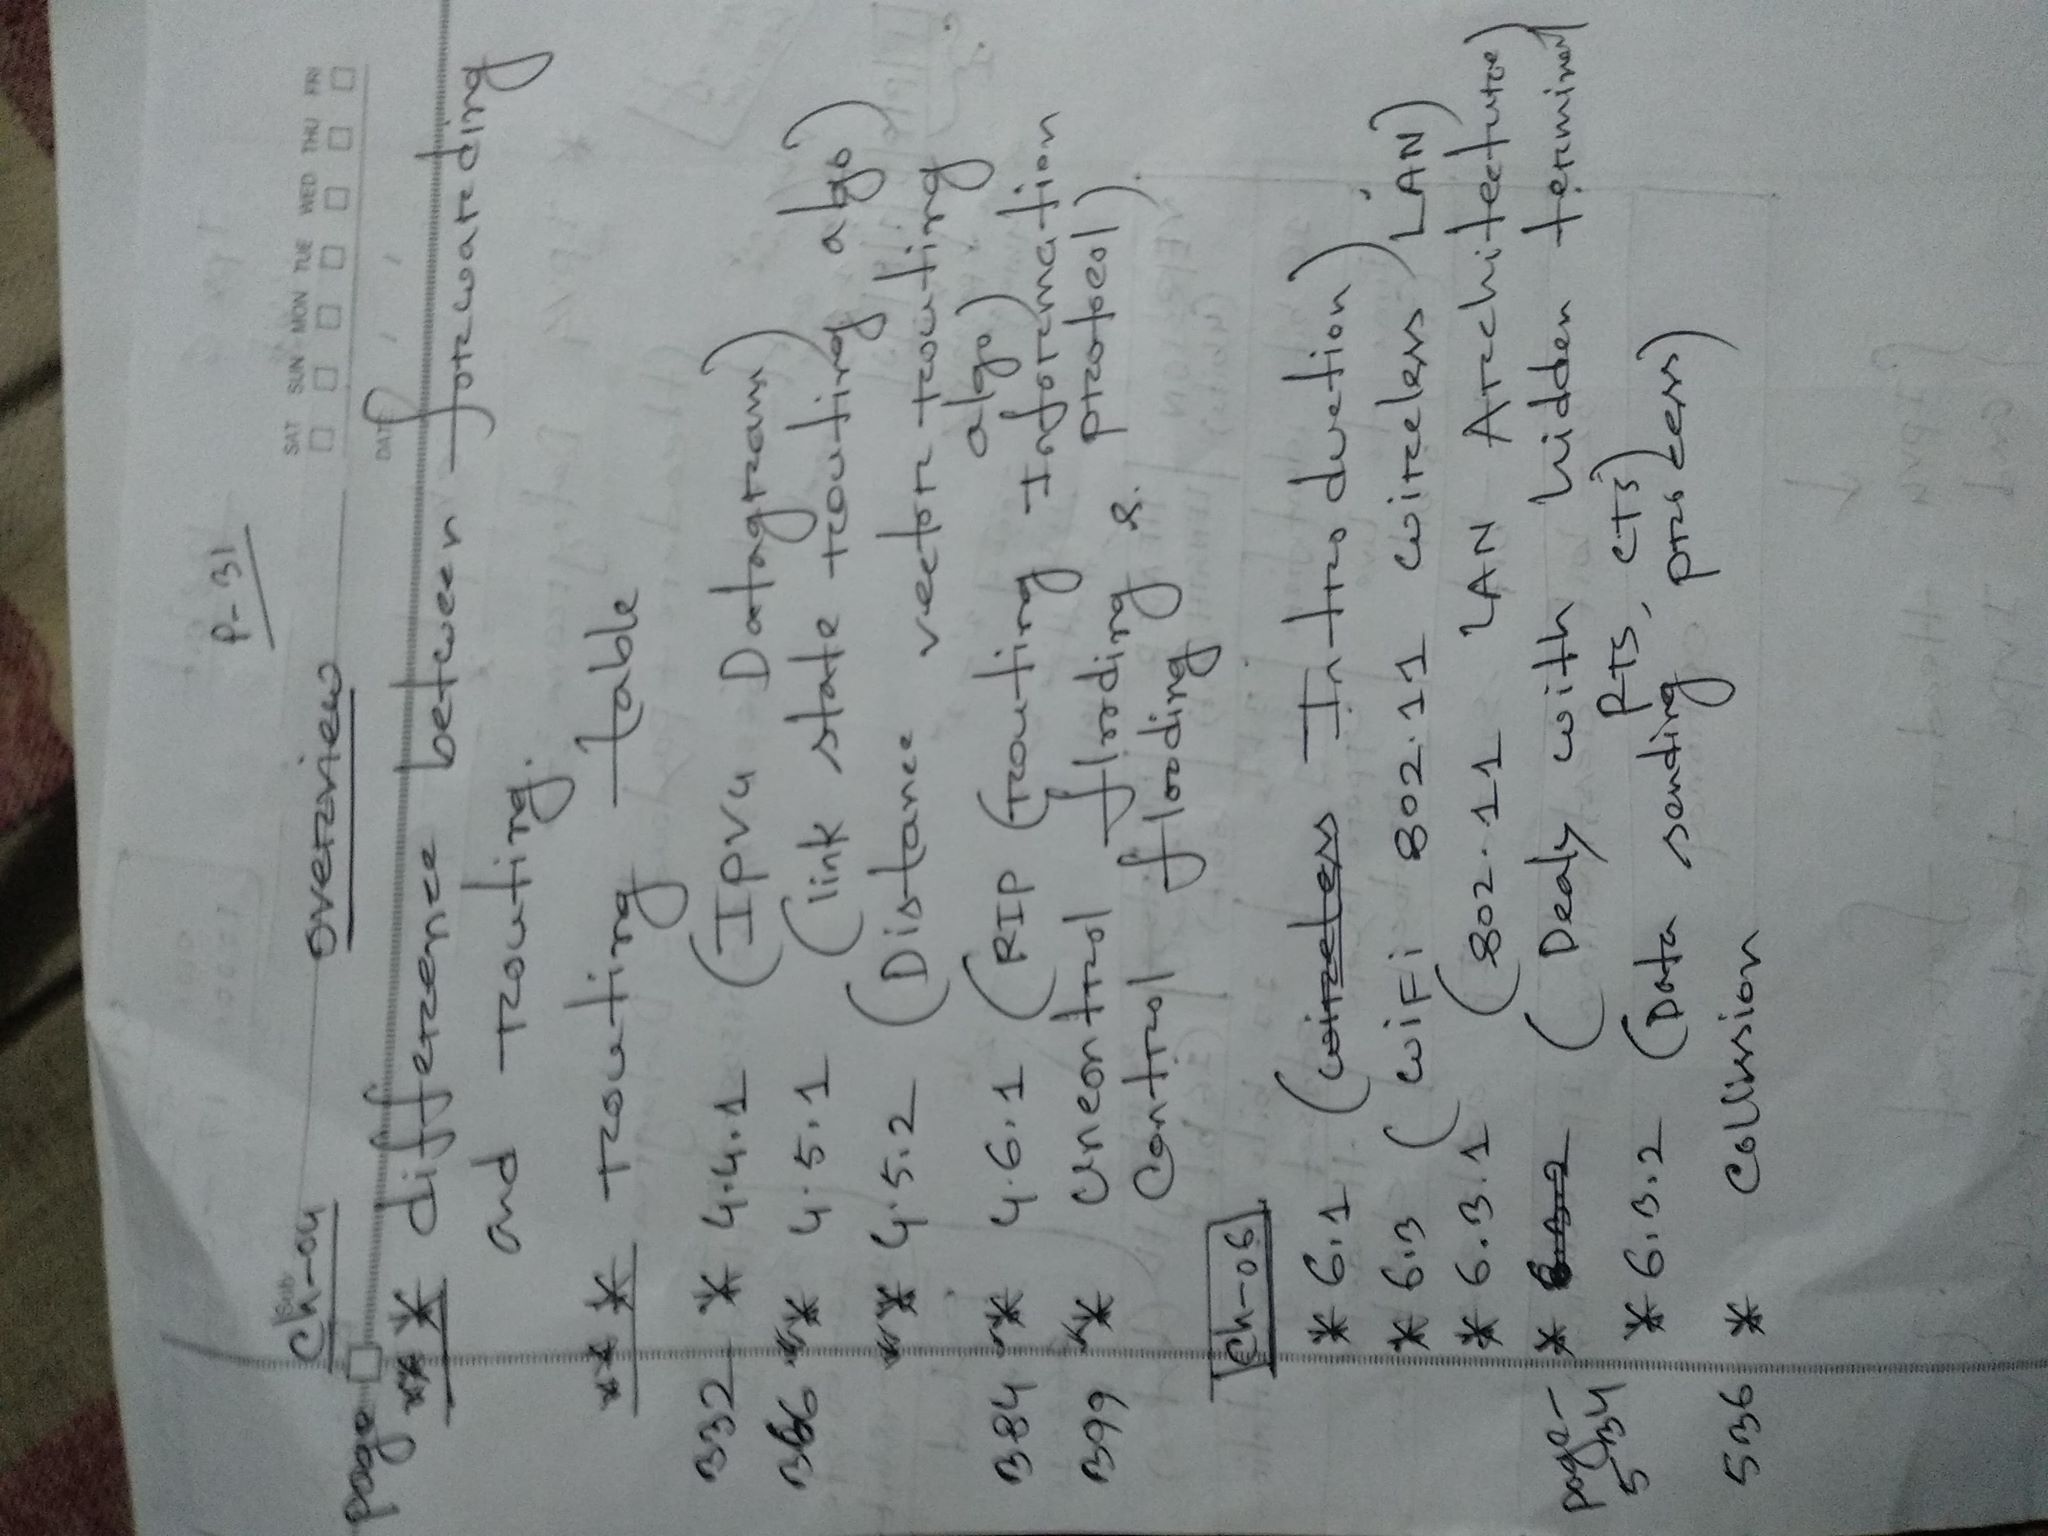 P-31
Sub:
Ch-04 overview
SAT SUN MON TUE WED THU FRI
page
DATE
*** difference between forwarding
and routing.
*** routing table
332 * 4.4.1 (IPv4 Datagram)
366 ** 4.5.1 (link state routing algo)
** 4.5.2 (Distance vector routing
algo)
384 ** 4.6.1 (RIP (routing Information
protocol)
399 ** uncontrol flooding &
control flooding
Ch-06
* 6.1 (wireless Introduction)
* 6.3 (WiFi 802.11 wireless LAN)
* 6.3.1 (802.11 LAN Architecture)
page-534 * 6.3.2 (Dealy with hidden terminal
RTS, CTS)
* 6.3.2 (Data sending process)
536 * Collission